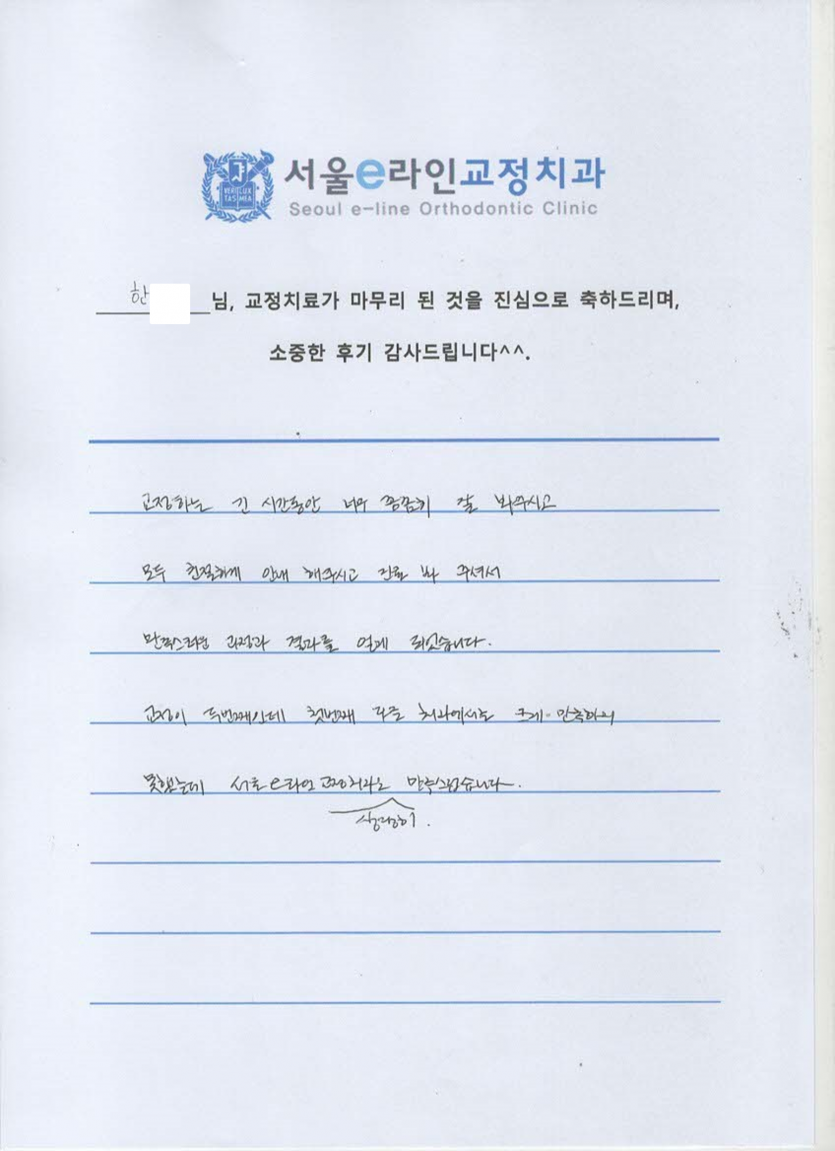 서울e라인교정치과
Seoul e-line Orthodontic Clinic
VERI LUX
TAS MEA
한 님, 교정치료가 마무리 된 것을 진심으로 축하드리며,
소중한 후기 감사드립니다^^.
교정하는 긴 시간동안 너무 꼼꼼히 잘 봐주시고
모두 친절하게 안내 해주시고 진료 봐 주셔서
만족스러운 과정과 결과를 얻게 되었습니다.
교정이 두번째인데 첫번째 치과에서는 크게 만족하지
못했는데 서울e라인교정치과는 만족스럽습니다.
굉장히.